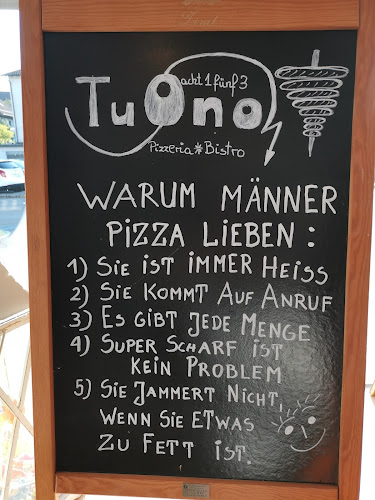 ackt 1 fünf 3
TuOno
Pizzeria * Bistro
WARUM MÄNNER
PIZZA LIEBEN :
1) SIE IST IMMER HEISS
2) SIE KOMMT AUF ANRUF
3) ES GIBT JEDE MENGE
4) SUPER SCHARF IST
KEIN PROBLEM
5) SIE JAMMERT NICHT,
WENN SIE ETWAS
ZU FETT IST.